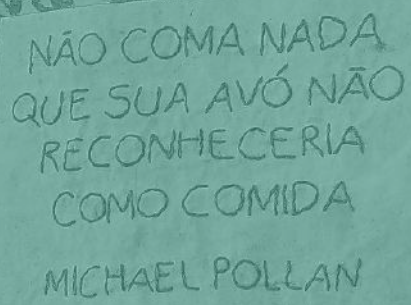 NÃO COMA NADA
QUE SUA AVÓ NÃO
RECONHECERIA
COMO COMIDA
MICHAEL POLLAN